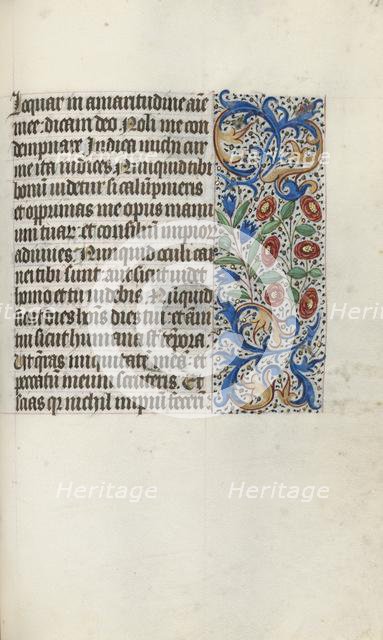 loquar in amaritudine aīe
mee. dicam deo Noli me con
dempnare Indica michi cur
me ita iudices Nunquid tibi
bonū uidetur si calūpnieris
et opprimas me opus manu
um tuar et consiliū impior
adiuues Nunquid oculi car
nei tibi sunt aut sicut uidet
homo et tu uidebis Nunquid
sicut dies hois dies tui et ani
tui sicut humana sūt tēpora
Ut qras iniquitatē meā et
peccatū meum scruteris Et
scias qr nichil impiū fecerī
Heritage
Heritage
Heritage
Heritage
Heritage
Heritage